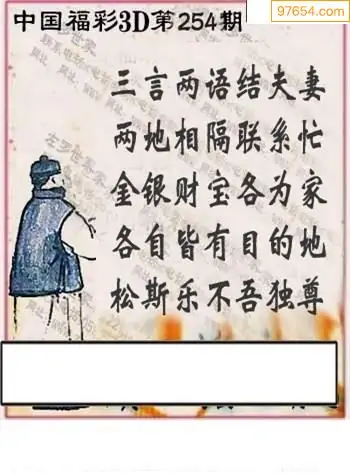 97654.com
中国福彩3D第254期
三言两语结夫妻
两地相隔联系忙
金银财宝各为家
各自皆有目的地
松斯乐不吾独尊